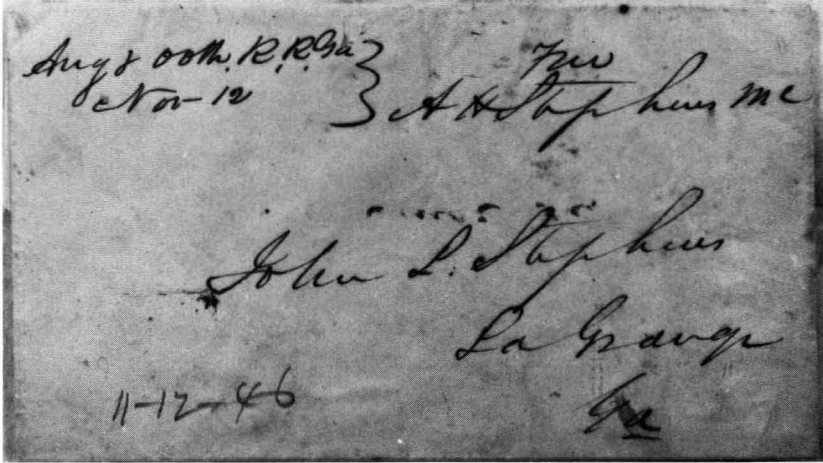 Aug & 00th. R.R. Ga
Nov-12
Free
A H Stephens MC
John L. Stephens
La Grange
Ga
11-12-46